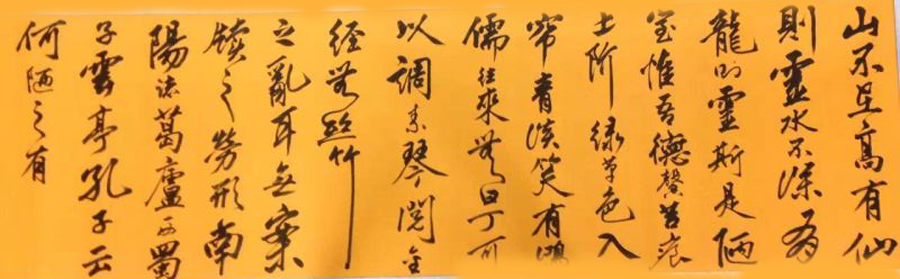 山不高有仙
則靈水不深有
龍則靈斯是陋
室惟吾德馨苔痕
上阶緑草色入
帘青談笑有鴻
儒往來無白丁可
以調素琴閲金
經無絲竹
之亂耳無案
牘之勞形南
陽诸葛廬西蜀
子雲亭孔子云
何陋之有